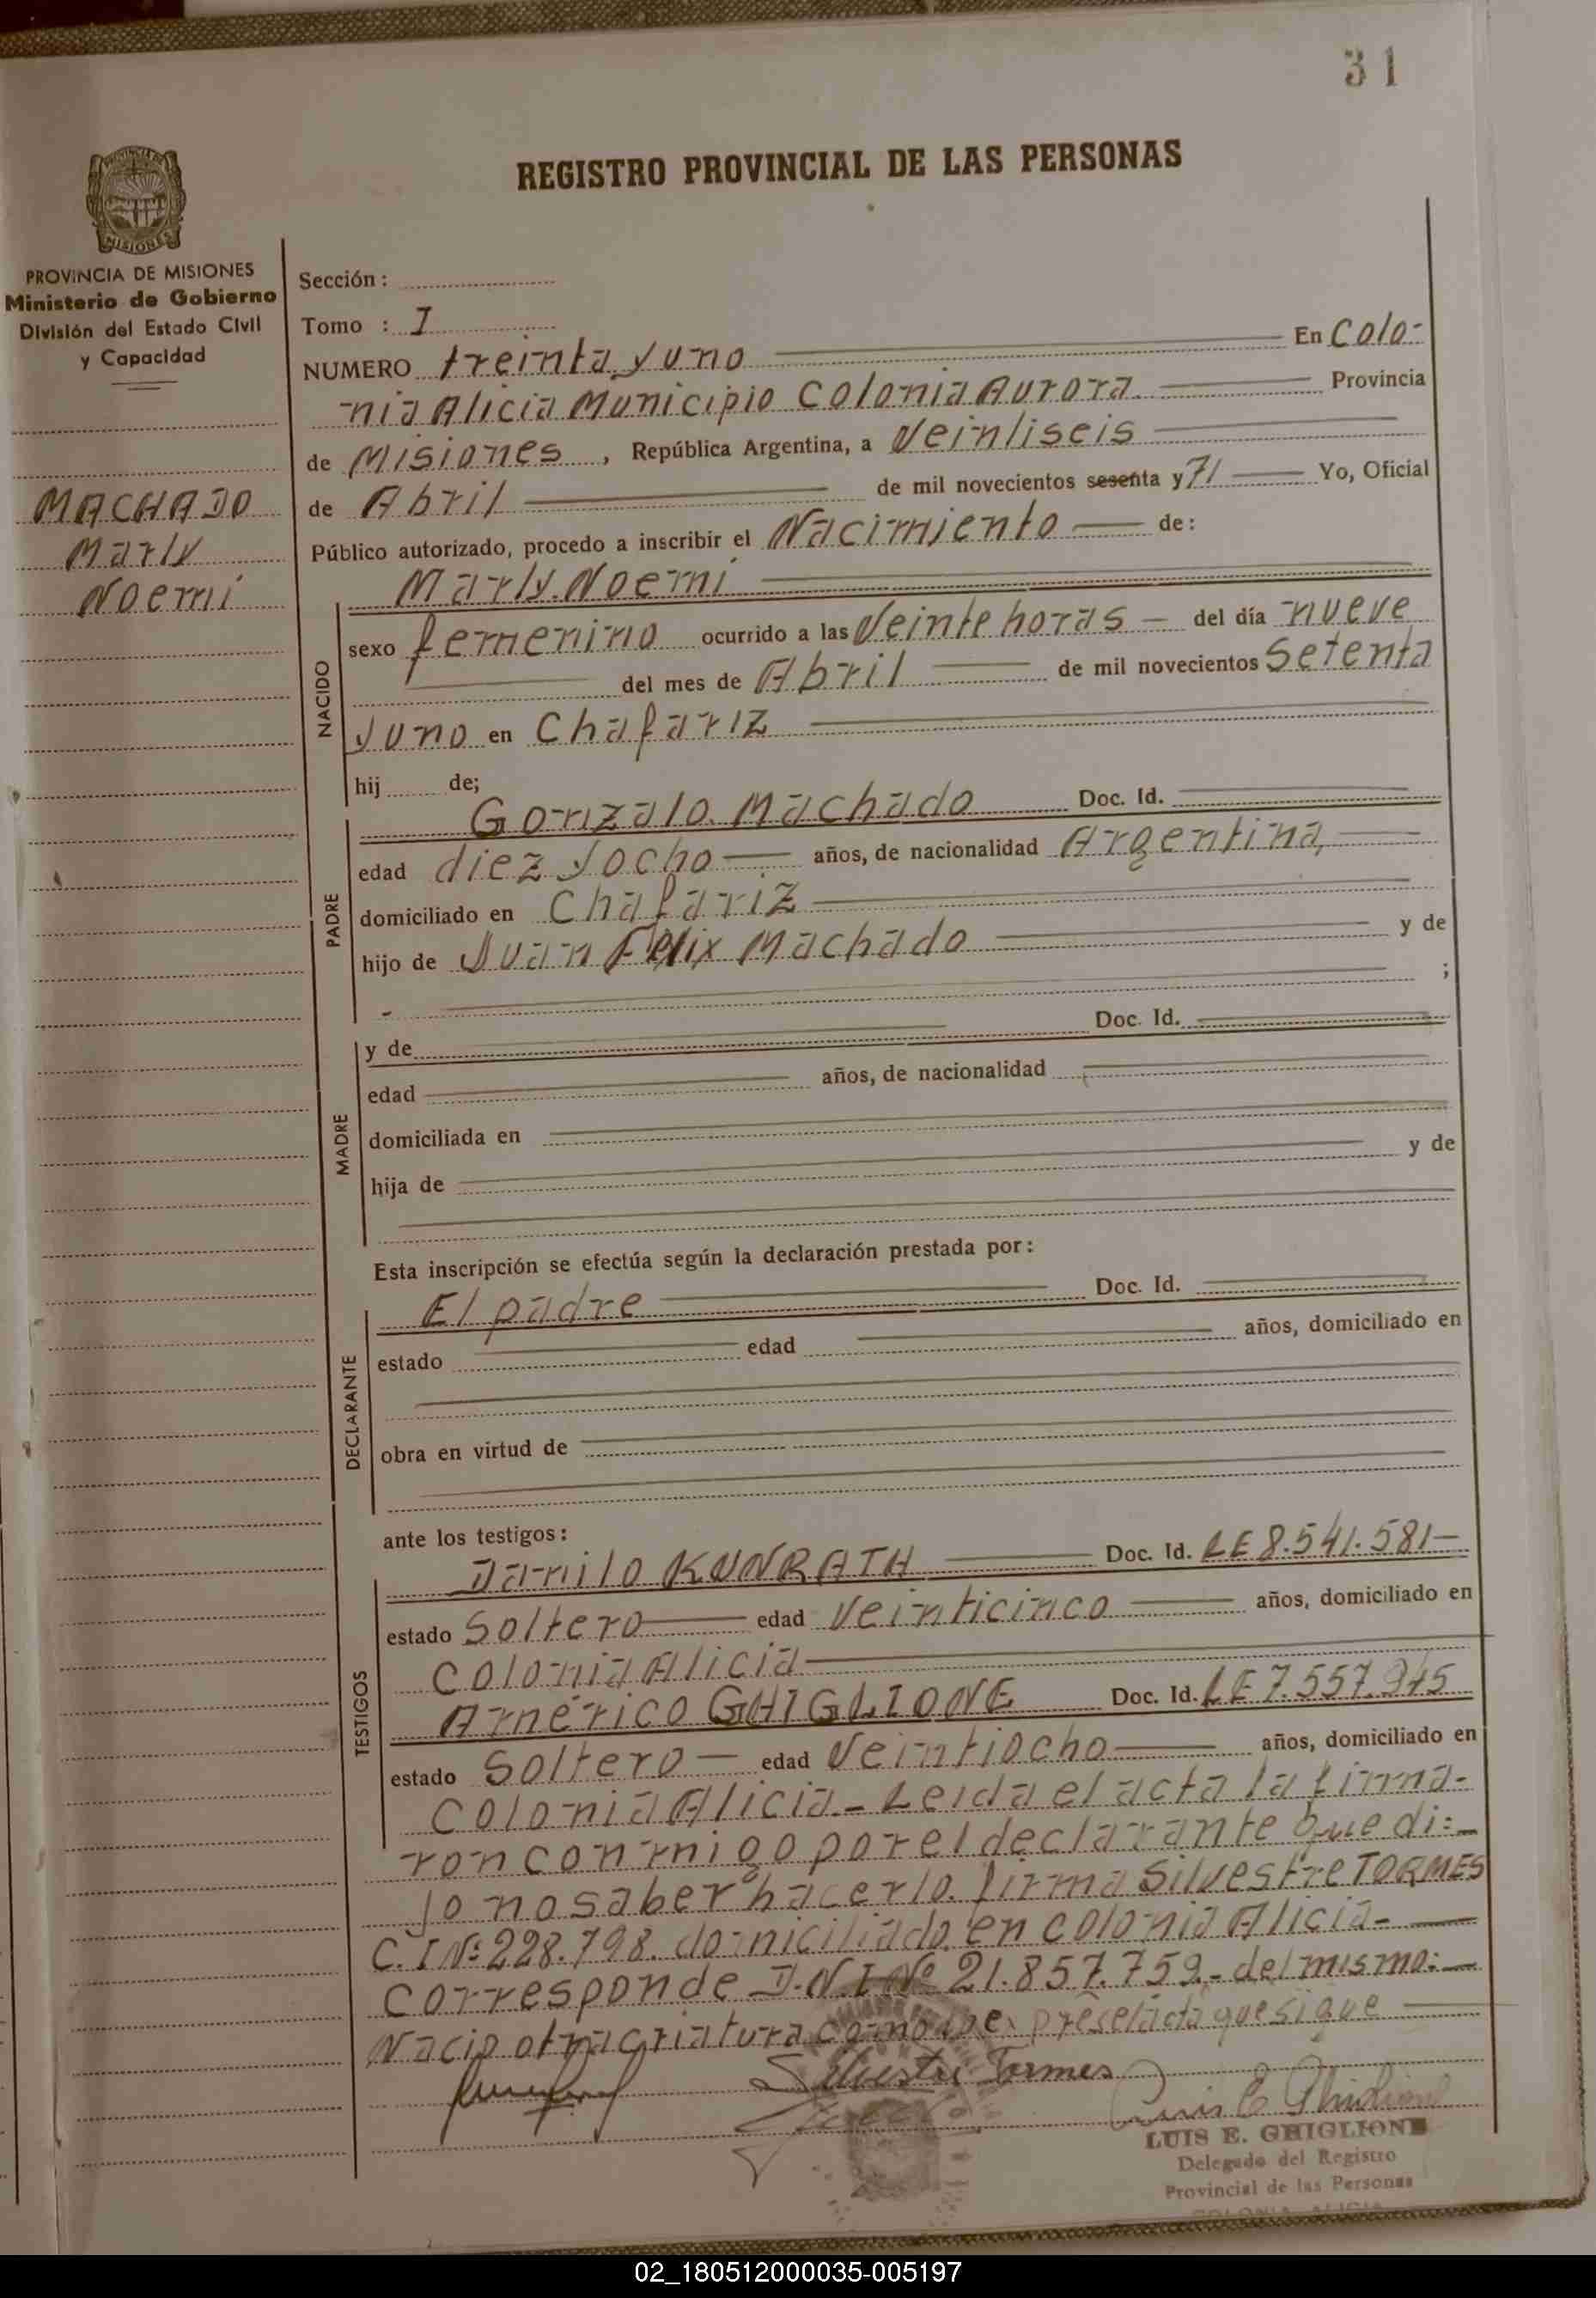 31
REGISTRO PROVINCIAL DE LAS PERSONAS
PROVINCIA DE MISIONES
MISIONES
Ministerio de Gobierno
División del Estado Civil
y Capacidad
MACHADO
Marly
Noemí
Sección:
Tomo : I
NUMERO treinta y uno En Colo-
nia Alicia Municipio Colonia Aurora. Provincia
de Misiones, República Argentina, a Veintiseis
de Abril de mil novecientos sesenta y 71 Yo, Oficial
Público autorizado, procedo a inscribir el Nacimiento de:
Marly Noemí
NACIDO
sexo femenino ocurrido a las Veinte horas - del día nueve
del mes de Abril de mil novecientos Setenta
y uno en Chafariz
hij de;
PADRE
Gonzalo Machado Doc. Id.
edad diez y ocho años, de nacionalidad Argentina,
domiciliado en Chafariz
hijo de Juan Felix Machado y de
;
MADRE
y de Doc. Id.
edad años, de nacionalidad
domiciliada en
hija de y de
Esta inscripción se efectúa según la declaración prestada por:
DECLARANTE
El padre Doc. Id.
estado edad años, domiciliado en
obra en virtud de
ante los testigos:
TESTIGOS
Danilo KUNRATH Doc. Id. LE 8.541.581-
estado Soltero edad Veinticinco años, domiciliado en
Colonia Alicia
Américo GHIGLIONE Doc. Id. LE 7.557.945
estado Soltero - edad Veintiocho años, domiciliado en
Colonia Alicia - Leida el acta la firma-
ron conmigo por el declarante que di:-
jo no saber hacerlo. firma Silvestre TORMES
C.I Nº 228.798. domiciliado en Colonia Alicia-
Corresponde D.N.I Nº 21.857.759.- del mismo:-
Nacio otra criatura como expresa el acta que sigue
Silvestre Tormes
Luis E Ghiglione
LUIS E. GHIGLIONE
Delegado del Registro
Provincial de las Personas
COLONIA ALICIA
02_180512000035-005197